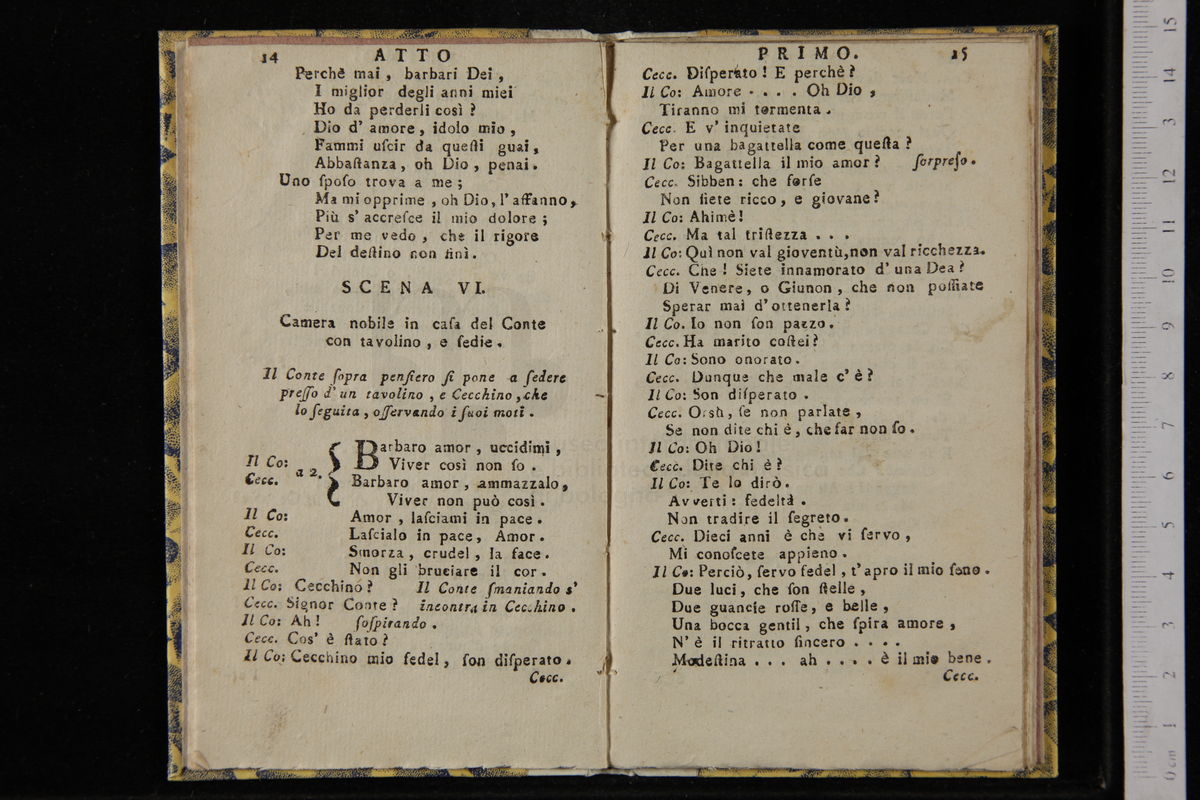 14 ATTO
Perchè mai, barbari Dei,
I miglior degli anni miei
Ho da perderli così?
Dio d' amore, idolo mio,
Fammi uſcir da queſti guai,
Abbaſtanza, oh Dio, penai.
Uno ſpoſo trova a me;
Ma mi opprime, oh Dio, l' affanno,
Più s' accreſce il mio dolore;
Per me vedo, che il rigore
Del deſtino non finì.
SCENA VI.
Camera nobile in caſa del Conte
con tavolino, e ſedie.
Il Conte ſopra penſiero ſi pone a ſedere
preſſo d' un tavolino, e Cecchino, che
lo ſeguita, oſſervando i ſuoi moti.
Il Co: Cecc. a 2. { Barbaro amor, uccidimi,
Viver così non ſo.
Barbaro amor, ammazzalo,
Viver non può così.
Il Co: Amor, laſciami in pace.
Cecc. Laſcialo in pace, Amor.
Il Co: Smorza, crudel, la face.
Cecc. Non gli bruciare il cor.
Il Co: Cecchino? Il Conte ſmaniando s'
Cecc. Signor Conte? incontra in Cecchino.
Il Co: Ah! ſoſpirando.
Cecc. Cos' è ſtato?
Il Co: Cecchino mio fedel, ſon diſperato.
Cecc.
PRIMO. 15
Cecc. Diſperato! E perchè?
Il Co: Amore .... Oh Dio,
Tiranno mi tormenta.
Cecc. E v' inquietate
Per una bagattella come queſta?
Il Co: Bagattella il mio amor? ſorpreſo.
Cecc. Sibben: che forſe
Non ſiete ricco, e giovane?
Il Co: Ahimè!
Cecc. Ma tal triſtezza ...
Il Co: Quì non val gioventù, non val ricchezza.
Cecc. Che! Siete innamorato d' una Dea?
Di Venere, o Giunon, che non poſſiate
Sperar mai d' ottenerla?
Il Co. Io non ſon pazzo.
Cecc. Ha marito coſtei?
Il Co: Sono onorato.
Cecc. Dunque che male c' è?
Il Co: Son diſperato.
Cecc. Orsù, ſe non parlate,
Se non dite chi è, che far non ſo.
Il Co: Oh Dio!
Cecc. Dite chi è?
Il Co: Te lo dirò.
Avverti: fedeltà.
Non tradire il ſegreto.
Cecc. Dieci anni è che vi ſervo,
Mi conoſcete appieno.
Il Co: Perciò, ſervo fedel, t' apro il mio ſeno.
Due luci, che ſon ſtelle,
Due guancie roſſe, e belle,
Una bocca gentil, che ſpira amore,
N' è il ritratto ſincero ....
Modeſtina ... ah .... è il mio bene.
Cecc.